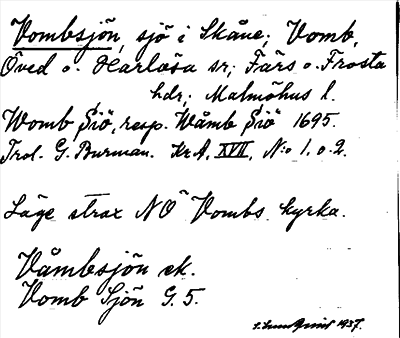 Vombsjön, sjö i Skåne; Vomb,
Öved o. Harlösa sr; Färs o. Frosta
hdr; Malmöhus l.
Womb Siö, resp. Wåmb Siö 1695.
Trol. G. Burman. Kr A, XVII, N:o 1. o. 2.
Läge strax NO Vombs kyrka.
Våmbsjön ek.
Vomb Sjön G. 5.
1937.